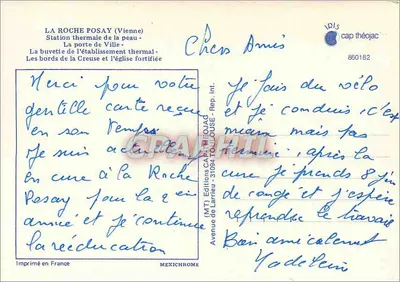 LA ROCHE POSAY (Vienne)
Station thermale de la peau -
La porte de Ville -
La buvette de l'établissement thermal -
Les bords de la Creuse et l'église fortifiée
IRIS
cap théojac
860182
Chers Amis
Merci pour votre
gentille carte reçue
en son temps
Je suis actuellement
en cure à La Roche
Posay pour la 2 ein
année et je continue
la rééducation
Je fais du vélo
et je conduis c'est
mieux mais pas
terminé. après la
cure je prends 8 jrs
de congé et j'espère
reprendre le travail
Bien amicalement
Madeleine
(MT) Editions CAP-THEOJAC
Avenue de Larrieu - 31094 TOULOUSE - Rep. Int.
Imprimé en France
MEXICHROME